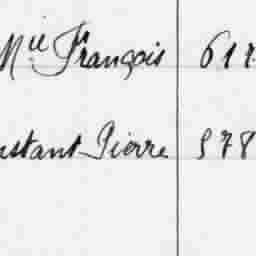 Mie François 617
nstant Pierre 578